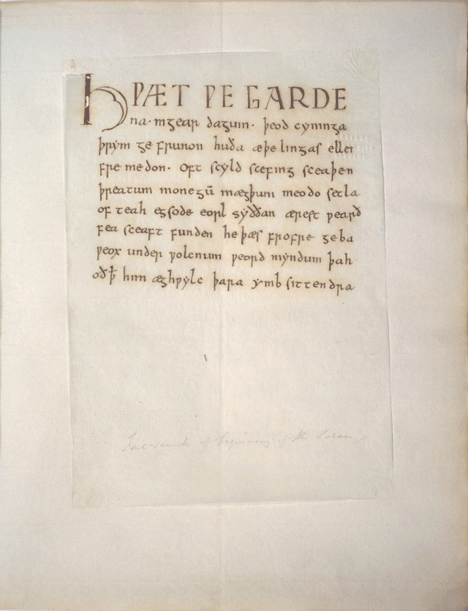 HǷÆT ǷE GARDE
na·ingear dagum· þeod cyninga
þrym ge frunon huða æþelingas ellen
fre medon. oft scyld scefing sceaþen
þreatum monegū mægþum meodo setla
of teah egsode eorl syððan ærest ƿearð
fea sceaft funden he þæs frofre geba
ƿeox under ƿolcnum ƿeorð myndum þah
oðꝥ him æghƿylc þara ymb sittendra
Fac-simile of beginning of the Poem